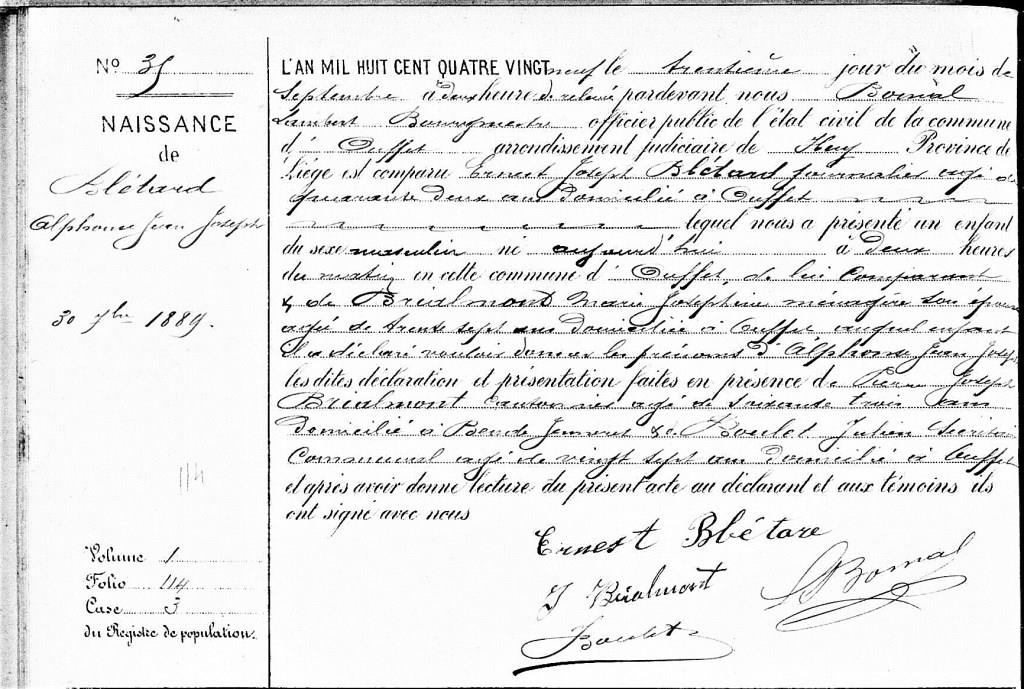 N° 35
NAISSANCE
de
Blétard
Alphonse Jean Joseph
30 7bre 1889.
114
Volume 1
Folio 114
Case 3
du Registre de population.
L'AN MIL HUIT CENT QUATRE VINGT neuf le trentième jour du mois de
Septembre à deux heure de relevée pardevant nous Bomal
Lambert Bourgmestre officier public de l'état civil de la commune
d' Ouffet arrondissement judiciaire de Huy Province de
Liége est comparu Ernest Joseph Blétard journalier agé de
quarante deux ans domicilié à Ouffet
lequel nous a présenté un enfant
du sexe masculin né aujourd'hui à deux heures
du matin en cette commune d' Ouffet, de lui comparant
& de Brialmont Marie Joséphine ménagère son épouse
agée de trente sept ans domiciliée à Ouffet auquel enfant
il a déclaré vouloir donner les prénoms d'Alphonse Jean Joseph
les dites déclaration et présentation faites en présence de Pierre Joseph
Brialmont Cantonnier agé de soixante trois ans
domicilié à Bende Jenneret & de Boulet Julien Secrétaire
Communal agé de vingt sept ans domicilié à Ouffet
et après avoir donné lecture du présent acte au déclarant et aux témoins ils
ont signé avec nous
Ernest Blétare
J Brialmont
L Bomal
Boulet